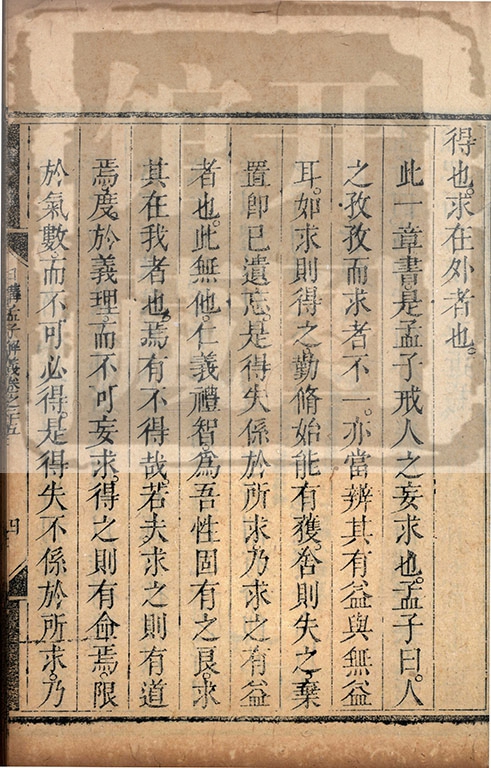 得也。求在外者也。
此一章書。是孟子戒人之妄求也。孟子曰。人
之孜孜而求者不一。亦當辨其有益與無益
耳。如求則得之。勤脩始能有獲。舍則失之。棄
置即已遺忘。是得失係於所求。乃求之有益
者也。此無他。仁義禮智。爲吾性固有之良。求
其在我者也。焉有不得哉。若夫求之則有道
焉。度於義理而不可妄求。得之則有命焉。限
於氣數而不可必得。是得失不係於所求。乃
日講孟子解義卷之二十五
四